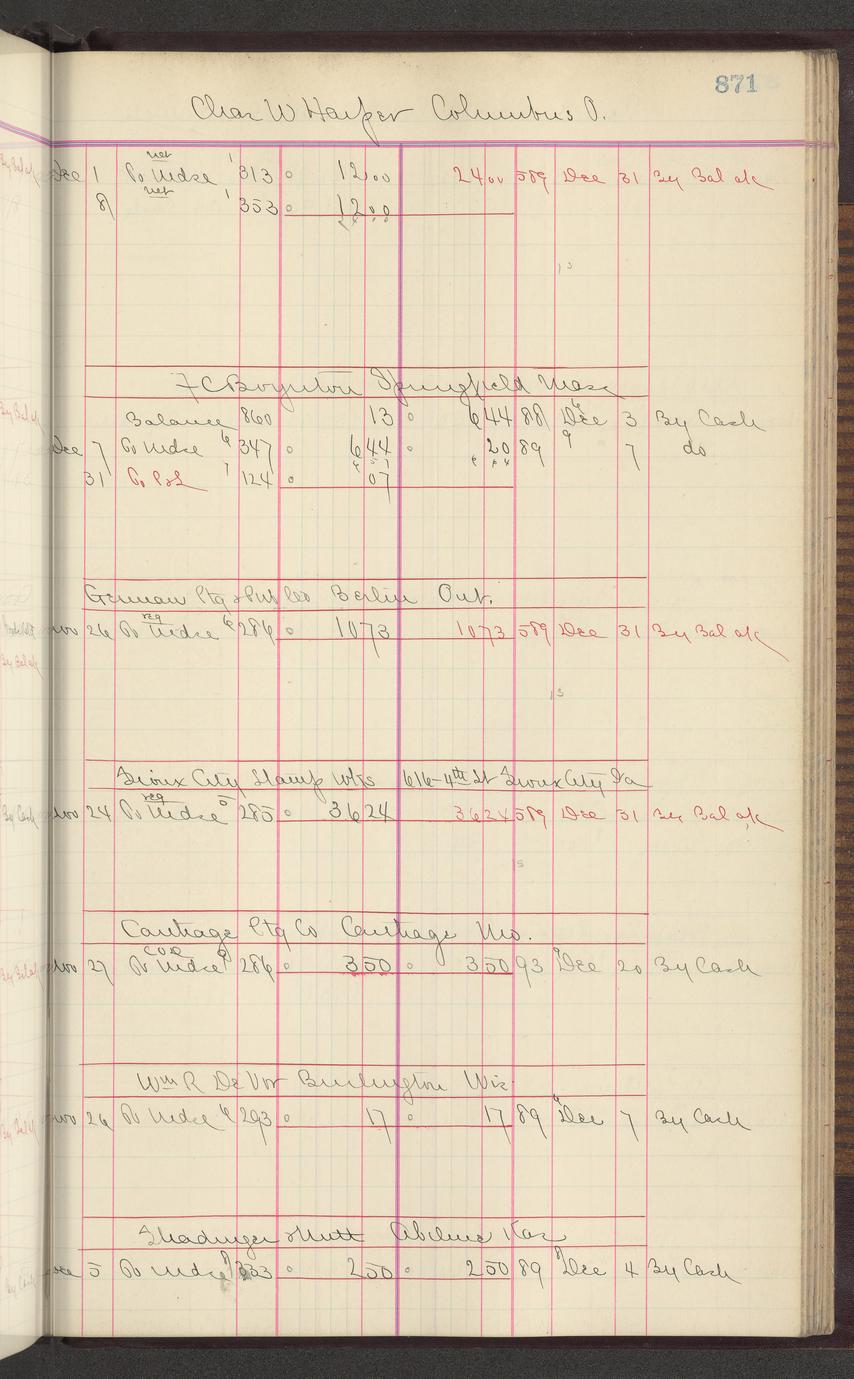 871
Chas W Harper Columbus O.
Dec 1 To Mdse net 1 313 12.00 24 00 589 Dec 31 By Bal ok
8 net 1 353 12 00
F C Boynton Springfield Mass
Balance 860 13 6 44 88 Dec 3 By Cash
Dec 7 To Mdse 6 347 6 44 20 89 9 7 do
31 To P&L 7 124 07
German Ptg & Pub Co Berlin Ont.
Nov 26 To Mdse reg 6 286 10 73 10 73 589 Dec 31 By Bal ok
Sioux City Stamp Wks 616-4th St Sioux City Ia
Nov 24 To Mdse reg 5 285 36 24 36 24 589 Dec 31 By Bal ok
Carthage Ptg Co Carthage Mo.
Nov 27 To Mdse 286 3 50 3 50 93 Dec 20 By Cash
Wm R De Vor Burlington Wis
Nov 26 To Mdse 6 293 17 17 89 Dec 7 By Cash
Shadinger & Mutt Abilene Kas
Dec 5 To Mdse 333 2 50 2 50 89 Dec 4 By Cash